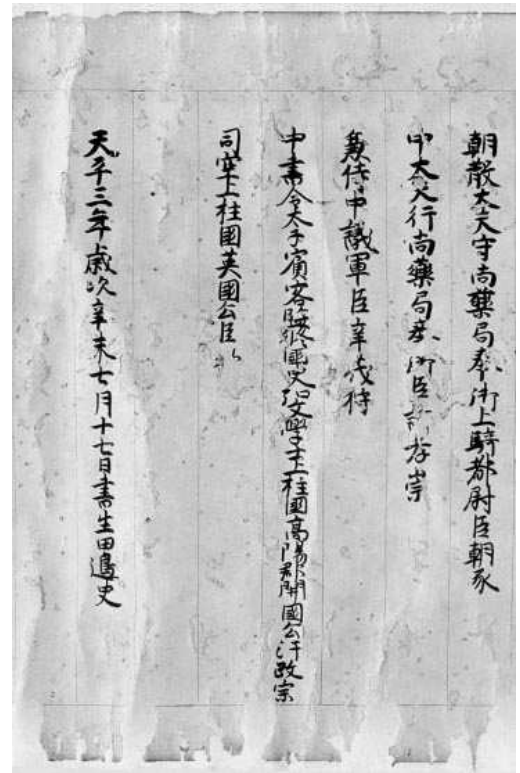 朝散太夫守尚藥局奉御上騎都尉臣朝家
中太夫行尚藥局奉御臣許孝崇
兼侍中議軍臣辛茂将
中書令太子賓客監修國史弘文學士上柱國高陽郡開國公汗政宗
司空上柱國英國公臣
天平三年歲次辛未七月十七日書生田邊史